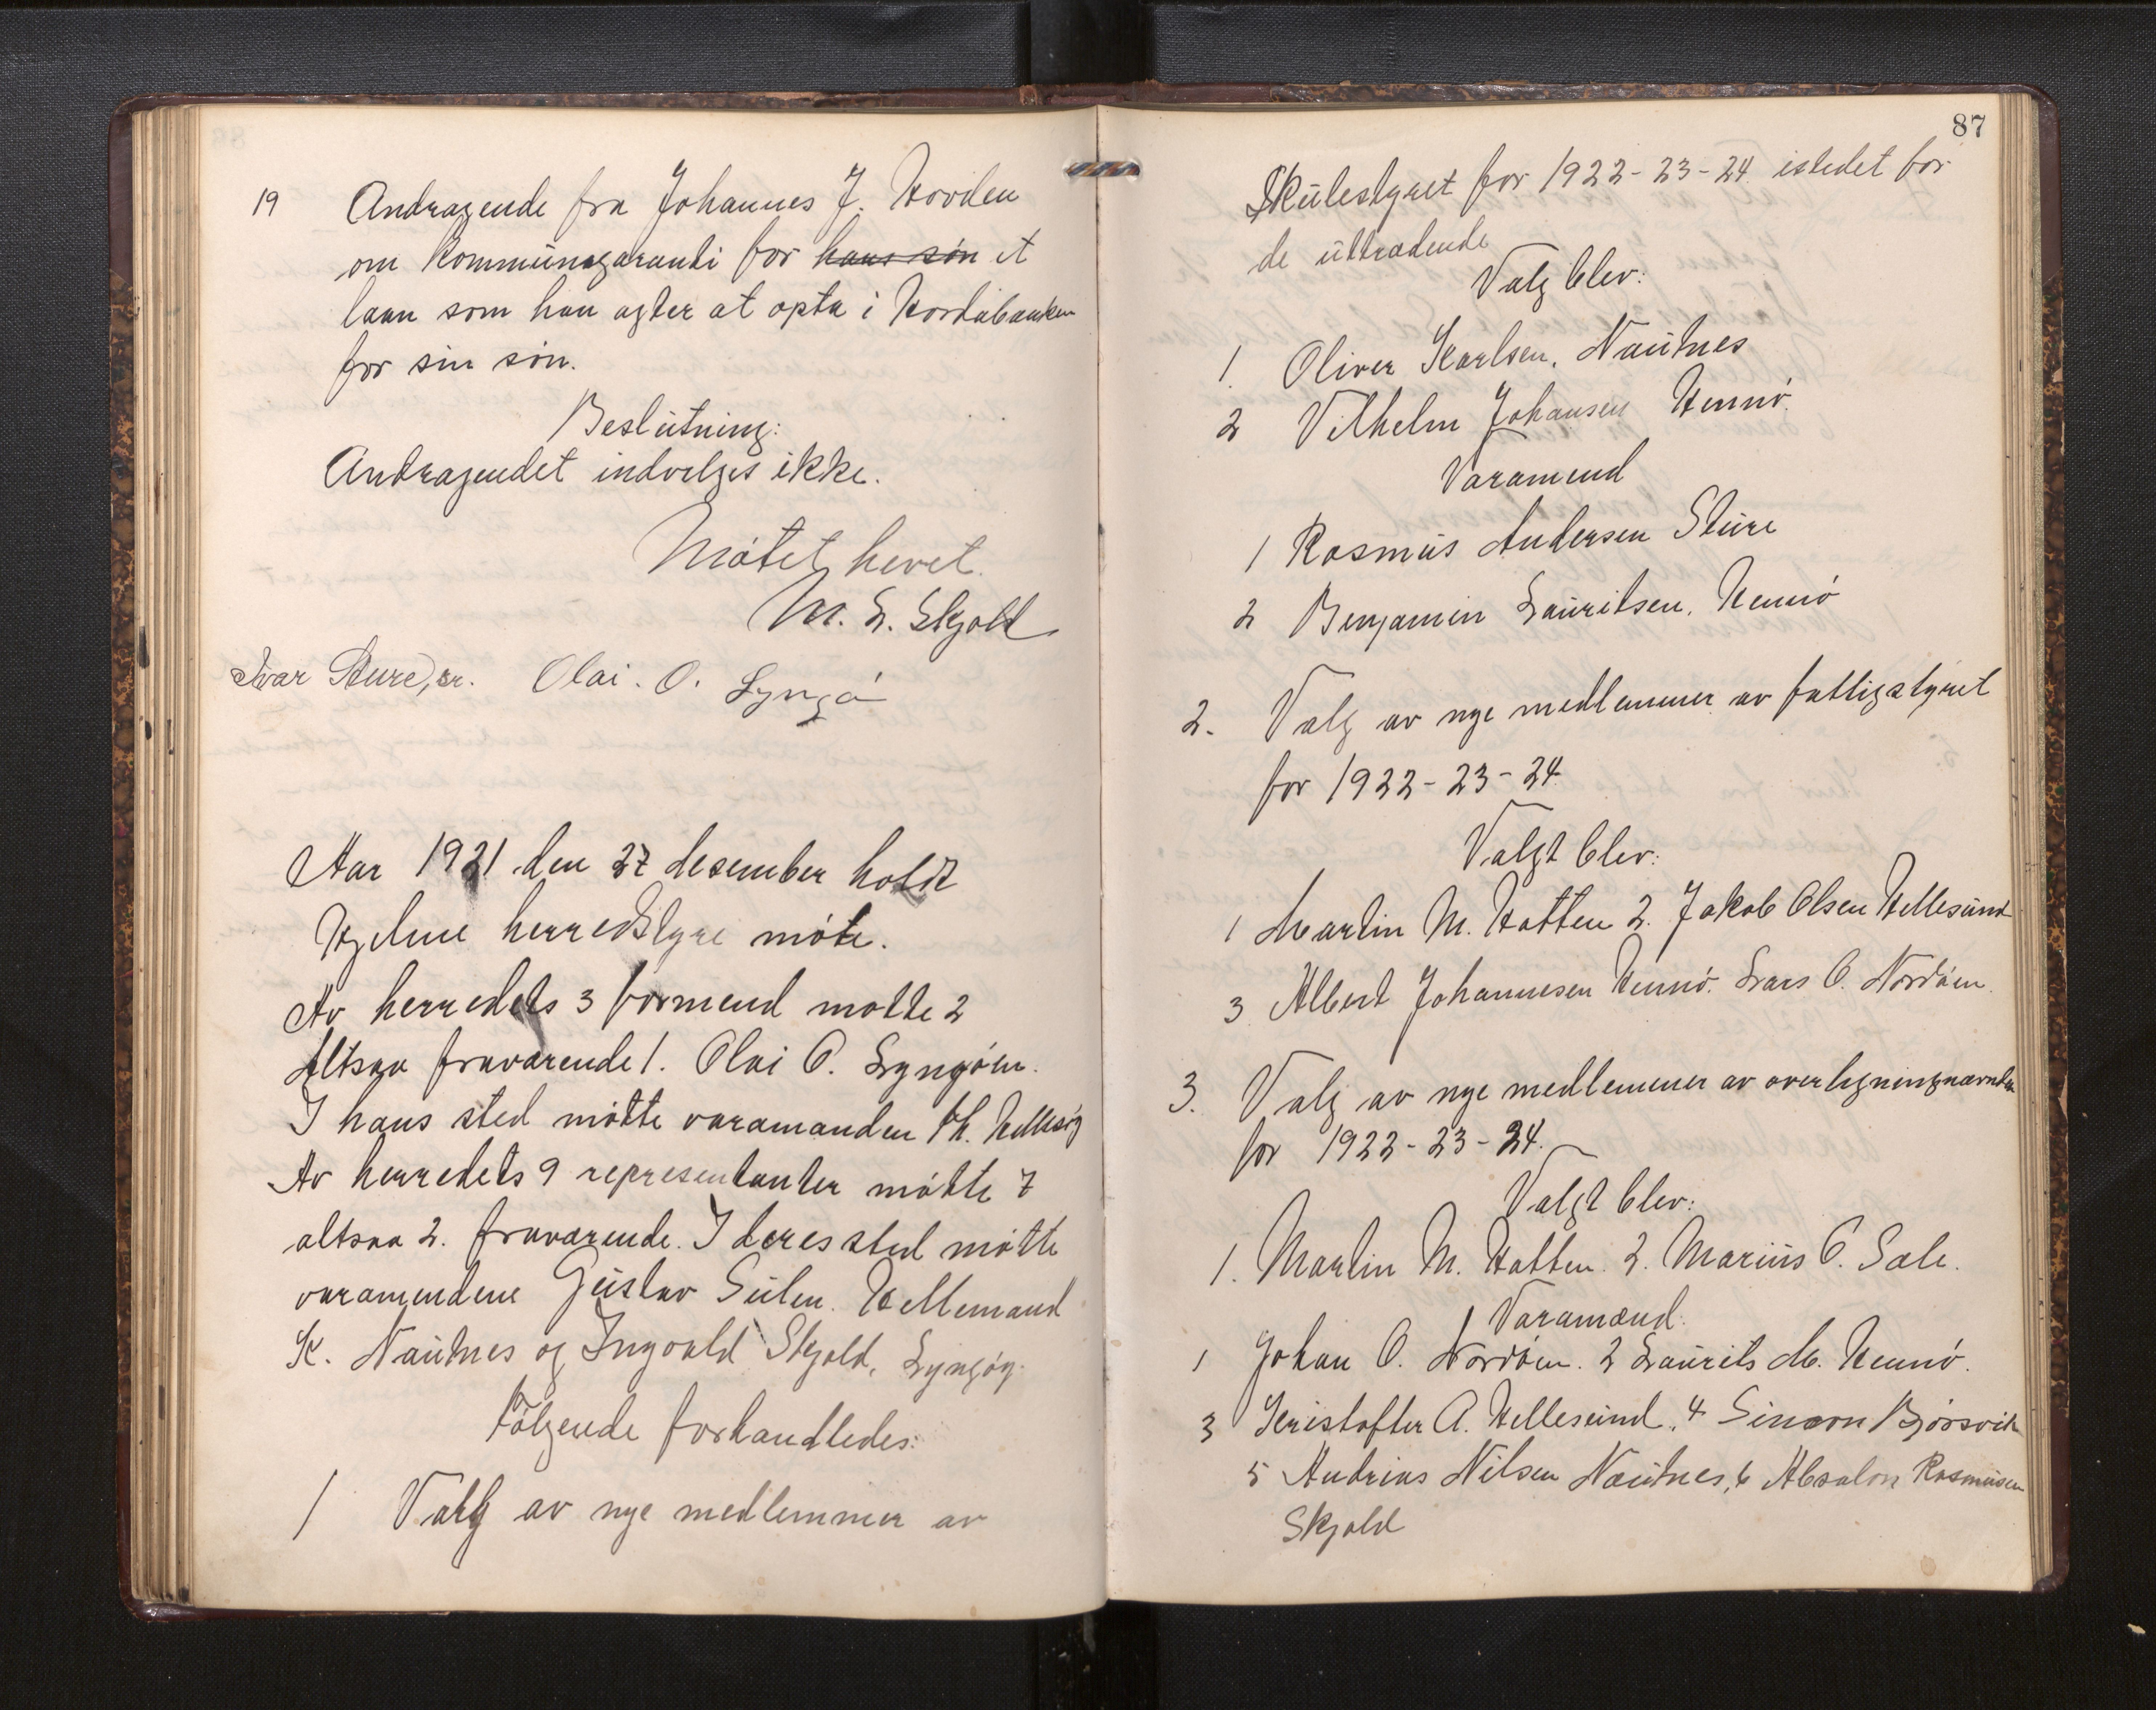 19 Andragende fra Johannes J. Hovden
om kommunegaranti for hans søn et
laan som han agter at opta i Hordabanken
for sin søn.
Beslutning:
Andragendet indvelges ikke.
Møtet hevet.
M. L. Skjold
Ivar Sture, sr. Olai. O. Lyngø
Aar 1921 den 27 desember holdt
Hjelme herredstyre møte.
Av herredets 3 formend møtte 2
Altsaa fraværende 1. Olai O. Lyngøen.
I hans sted møtte varamanden Th. Hellesøy
Av herredets 9 representanter møtte 7
altsaa 2. fraværende. I deres sted møtte
varamendene Gustav Sulen. Hellemand
K. Nautnes og Ingvald Skjold, Lyngøy.
Følgende forhandledes:
1 Valg av nye medlemmer av
87
Skulestyret for 1922-23-24 istedet for
de uttrædende
Valg blev:
1. Oliver Karlsen, Nautnes
2 Vilhelm Johansen Hennø.
Varamend
1 Rasmus Andersen Sture
2 Benjamin Lauritsen, Hennø
2. Valg av nye medlemmer av fattigstyret
for 1922-23-24
Valgt blev:
1 Martin M. Hatten 2. Jakob Olsen Hellesund
3 Albert Johannesen Hennø. Lars O. Nordøen.
3. Valg av nye medlemmer av overligningsnævnden
for 1922-23-24.
Valgt blev:
1. Martin M. Hatten. 2. Marius O. Sæle.
Varamænd.
1 Johan O. Nordøen. 2 Laurits M. Hennø.
3 Kristoffer A. Hellesund, 4 Simon Bjørsvik
5 Andreas Nilsen Nautnes, 6 Absalon Rasmusen
Skjold